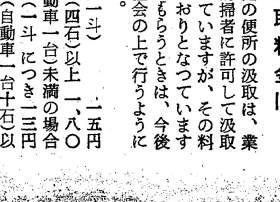 の便所の汲取は、業
掃者に許可して汲取
ていますが、その料
おりとなつています
もらうときは、今後
会の上で行うように
。
一斗) 一五円
(四石)以上 一、八〇
動車一台)未満の場合
(一斗につき一三円
(自動車一台十石)以